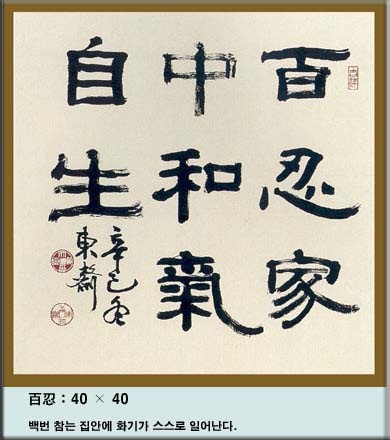 百忍家
中和氣
自生
辛巳冬
東齋
百忍 : 40 × 40
백번 참는 집안에 화기가 스스로 일어난다.